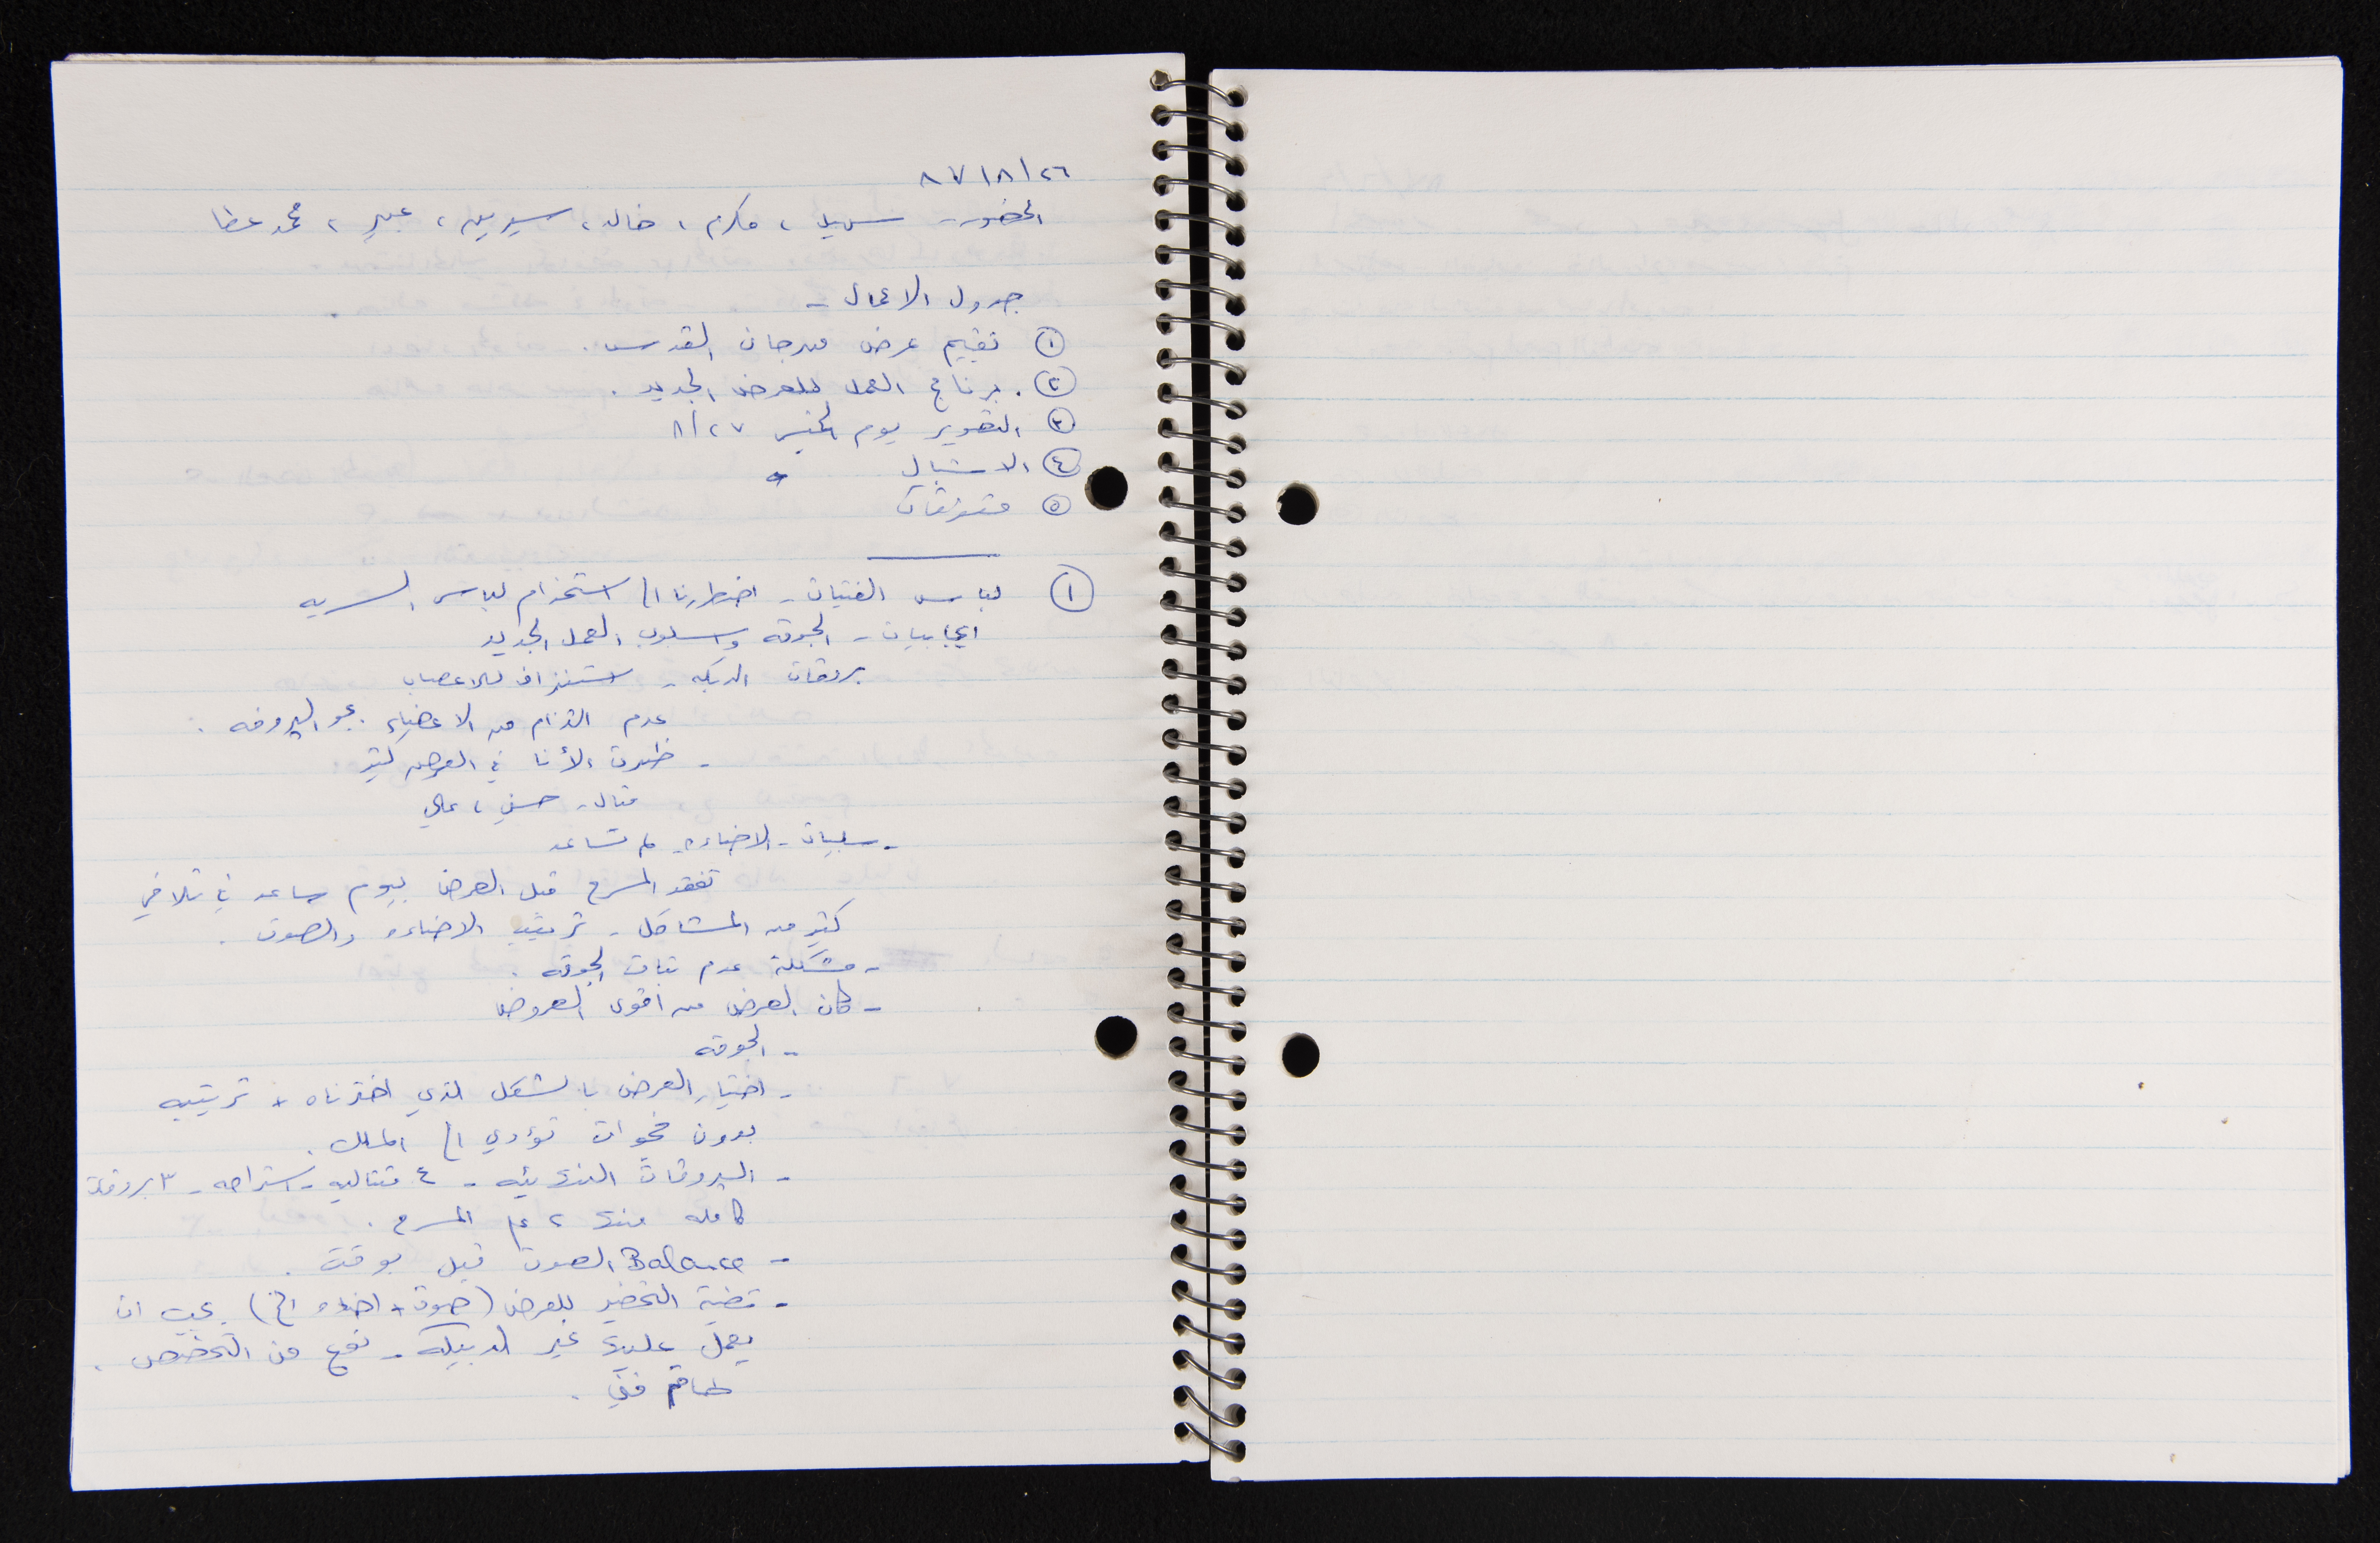 ٨٧/٨/٢٦
الحضور - سهيل ، مكرم ، خالد ، سيرين ، عبير ، محمد عطا
جدول الاعمال -
① تقييم عرض مهرجان القدس .
② . برنامج العمل للعرض الجديد .
③ التصوير يوم الخميس ٨/٢٧
④ الاشبال
⑤ متفرقات
① لباس الفتيات - اضطررنا الى استخدام لباس السريه
ايجابيات - الجوقه واسلوب العمل الجديد
بروفات الدبكه - استنزاف للاعصاب
عدم التزام من الاعضاء بجو البروفه .
- ظهرت الأنا في العرض كثير
مثال - حسني ، علي
- سلبيات - الاضاءه لم تساعد
تفقد المسرح قبل العرض بيوم ساعد في تلافي
كثير من المشاكل - ترتيب الاضاءه والصوت .
- مشكلة عدم ثبات الجوقه .
- كان العرض من اقوى العروض
- الجوقه
- اختيار العرض بالشكل الذي اخترناه + ترتيبه
بدون فجوات تؤدي الى الملل .
- البروفات النهائيه - ٤ متتاليه - استراحه - ٣ بروفات
كامله منها ٢ على المسرح .
- Balance الصوت قبل بوقت .
- قضية التحضير للعرض (صوت + اضاءه الخ) يجب ان
يعمل عليها غير الدبيكه - نوع من التخصص .
طاقم فني .